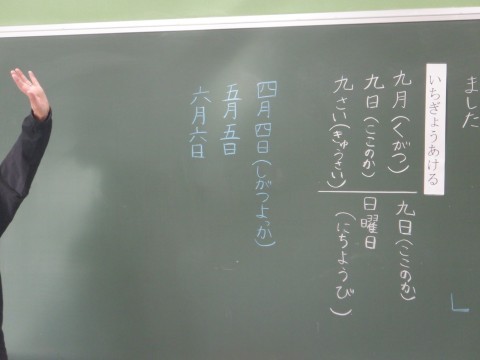 ました
いちぎょうあける
九月(くがつ)
九日(ここのか)
九さい(きゅうさい)
九日(ここのか)
日曜日
(にちようび)
四月四日(しがつよっか)
五月五日
六月六日